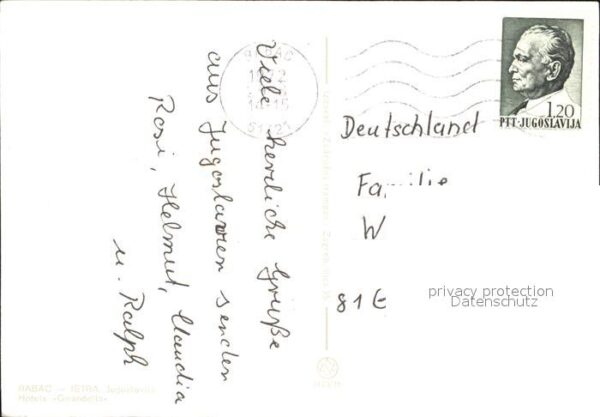 Viele herzliche Grüße
aus Jugoslavien senden
Rosi, Helmut, Claudia
u. Ralph
RABAC
51221
1.20
PTT-JUGOSLAVIJA
Deutschland
Familie
W
81 E
privacy protection
Datenschutz
RABAC — ISTRA, Jugoslavija
Hotels «Girandella»